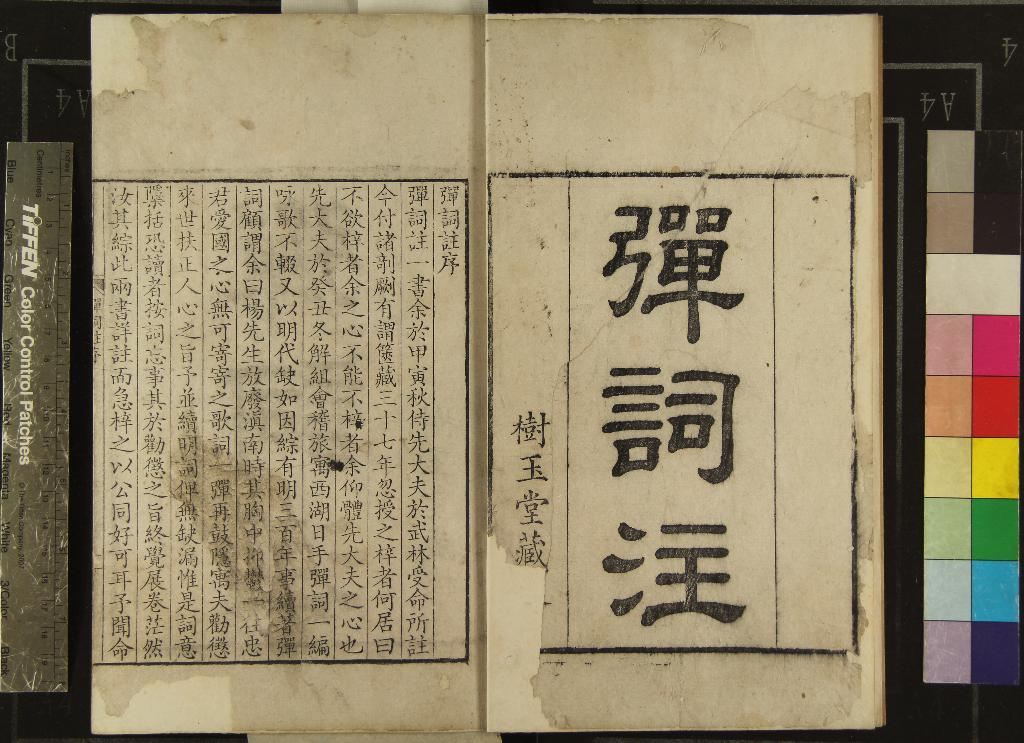 彈詞注
樹玉堂藏
彈詞註序
彈詞註一書余於甲寅秋侍先大夫於武林受命所註
今付諸剞劂有謂篋藏三十七年忽授之梓者何居曰
不欲梓者余之心不能不梓者余仰體先大夫之心也
先大夫於癸丑冬解組會稽旅寓西湖日手彈詞一編
咏歌不輟又以明代缺如因綜有明三百年事續著彈
詞顧謂余曰楊先生放廢滇南時其胸中抑鬱一往忠
君愛國之心無可寄寄之歌詞一彈再鼓隱寓夫勸懲
來世扶正人心之旨予並續明詞俾無缺漏惟是詞意
檃括恐讀者按詞忘事其於勸懲之旨終覺展卷茫然
汝其綜此兩書詳註而急梓之以公同好可耳予聞命
彈詞註序
TIFFEN Color Control Patches
Centimetres
Inches
Blue
Cyan
Green
Yellow
Red
Magenta
White
3/Color
Black
B
A4
A4
4